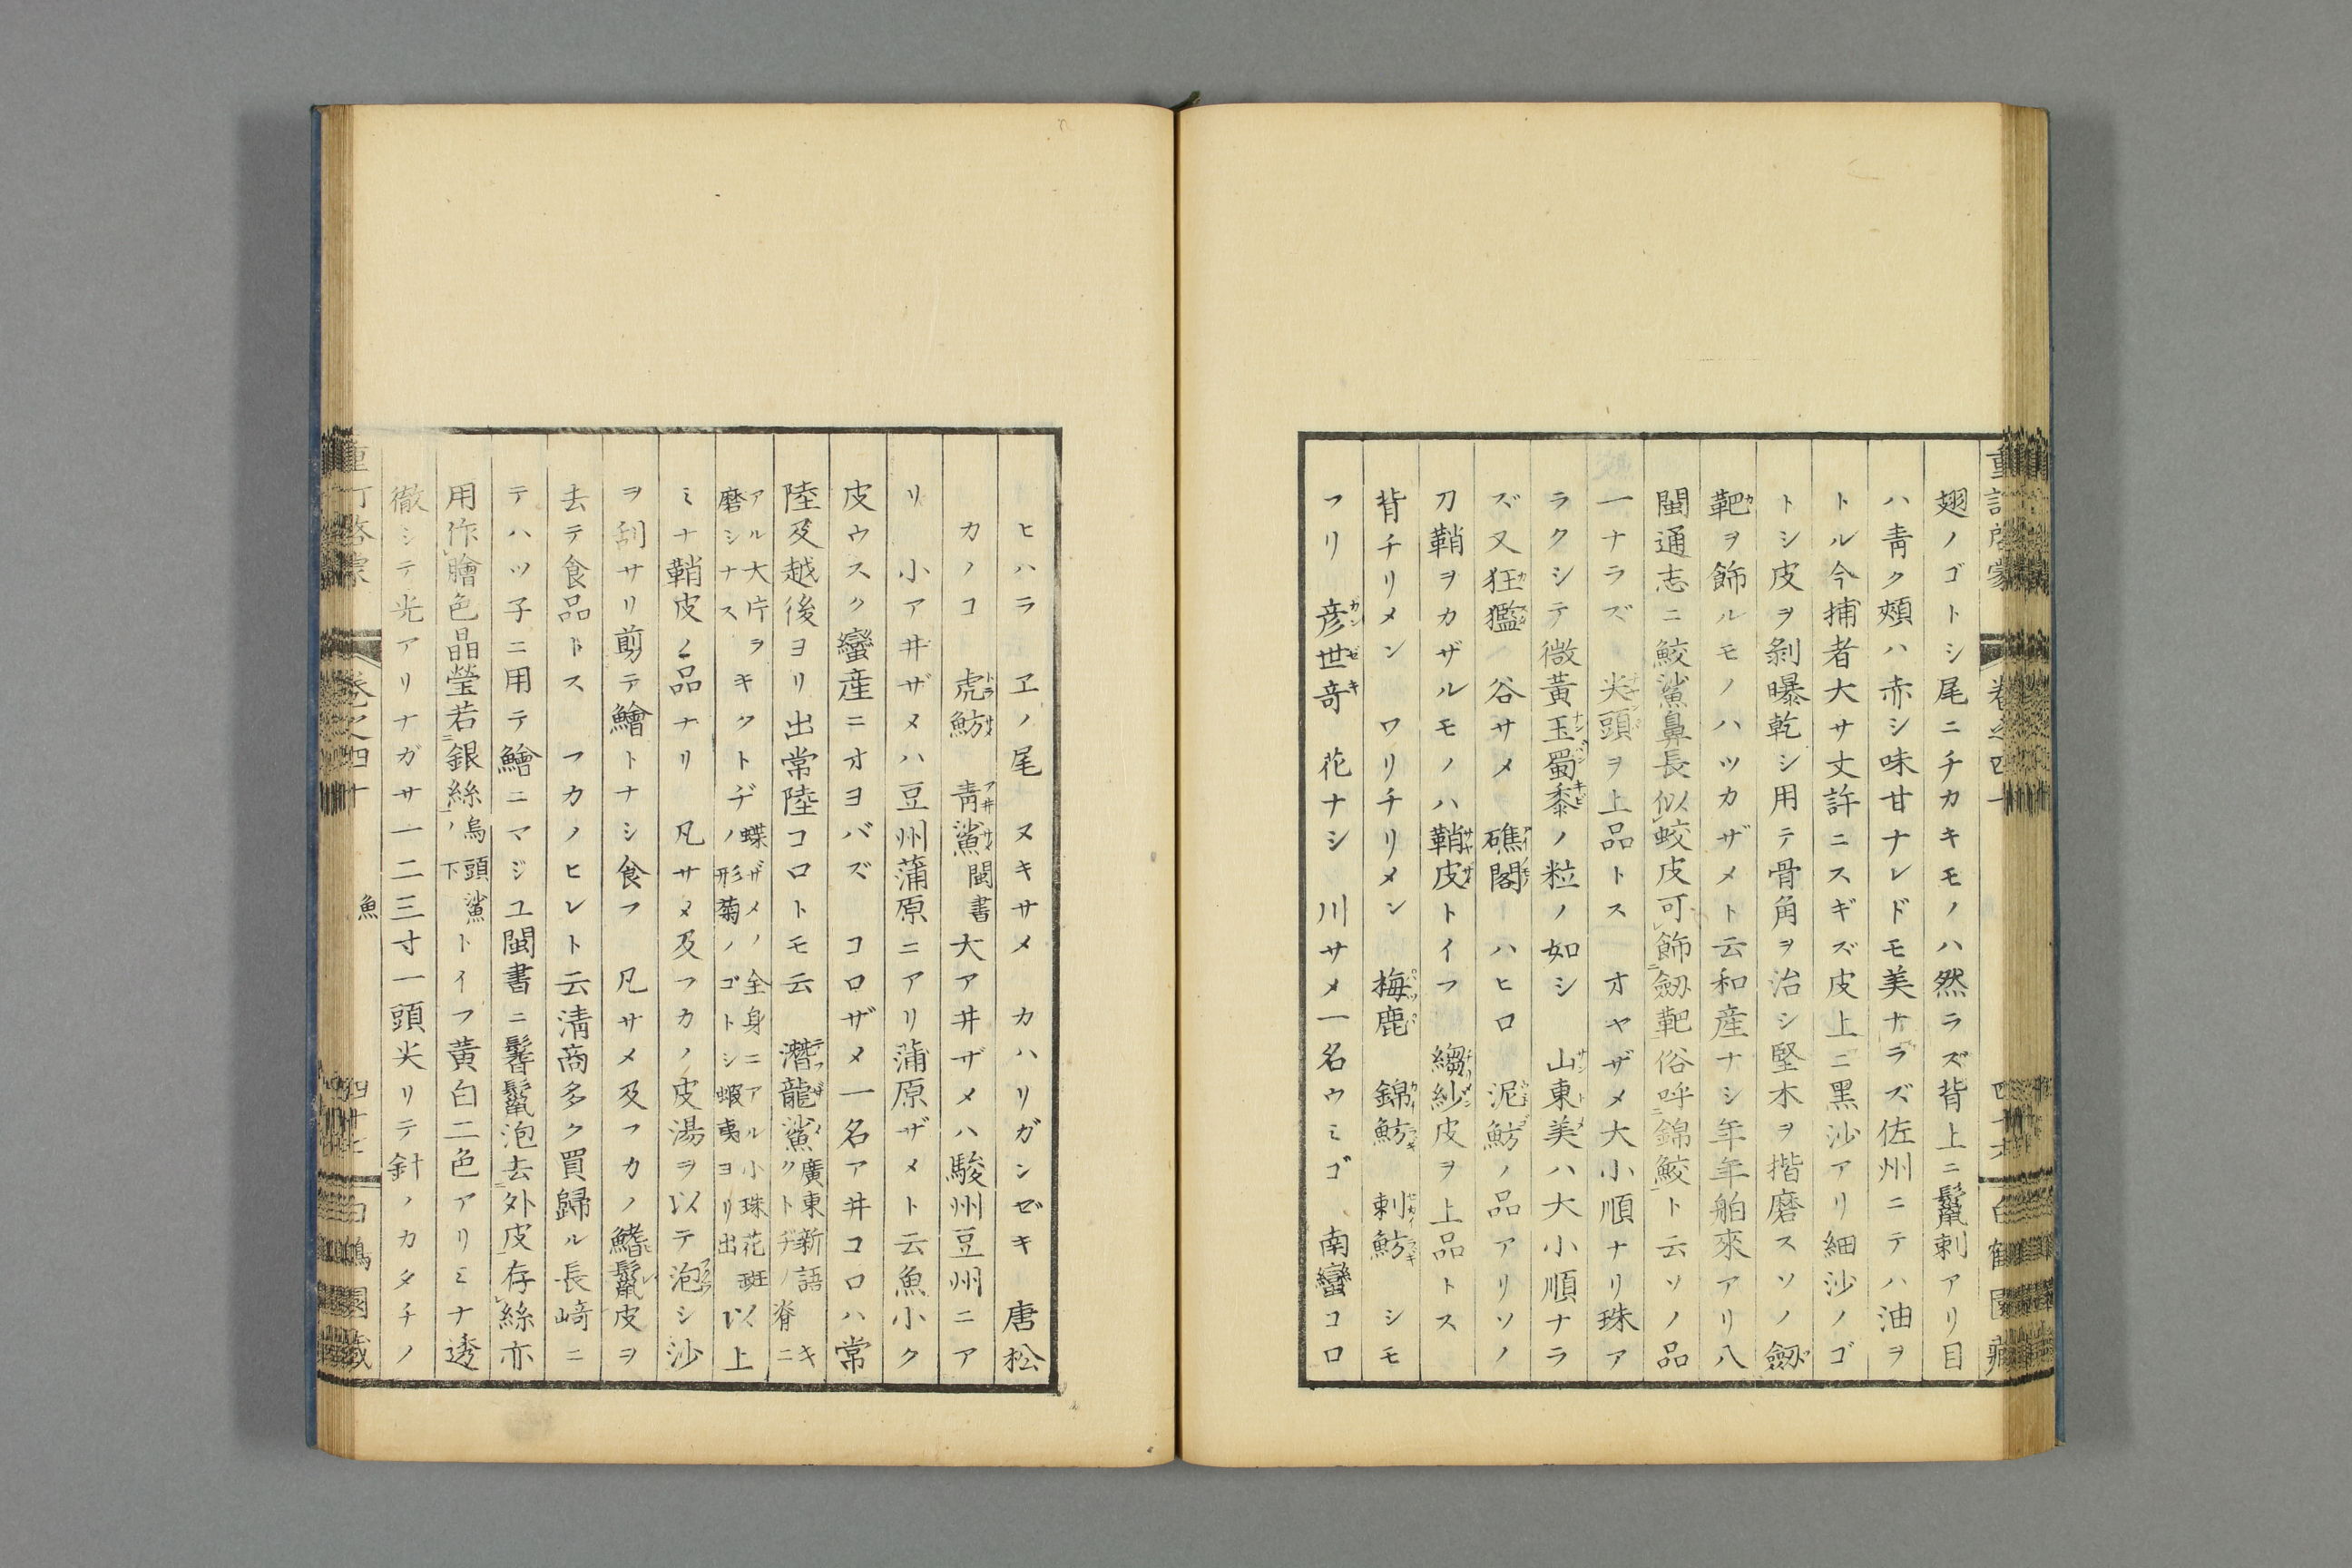 翅ノゴトシ尾ニチカキモノハ然ラズ背上ニ鬣刺アリ目
ハ青ク頰ハ赤シ味甘ナレドモ美ナラズ佐州ニテハ油ヲ
トル今捕者大サ丈許ニスギズ皮上ニ黒沙アリ細沙ノゴ
トシ皮ヲ剝曝乾シ用テ骨角ヲ治シ堅木ヲ揩磨スソノ劔
靶ヲ飾ルモノハツカザメト云和産ナシ年年舶來アリ八
閩通志ニ鮫鯊鼻長似蛟皮可飾劔靶俗呼錦鮫ト云ソノ品
一ナラズ 尖頭ヲ上品トス オヤザメ大小順ナリ珠ア
ラクシテ微黄玉蜀黍ノ粒ノ如シ 山東美ハ大小順ナラ
ズ又狂㺝 谷サメ 礁閣 ハヒロ 泥魴ノ品アリソノ
刀鞘ヲカザルモノハ鞘皮トイフ 縐紗皮ヲ上品トス
背チリメン ワリチリメン 梅鹿 錦魴 刺魴 シモ
フリ 彦世奇 花ナシ 川サメ一名ウミゴ 南蠻コロ
重訂啓蒙 卷之四十 白鶴園藏
ヒハラ ヱノ尾 ヌキサメ カハリガンゼキ 唐松
カノコ 虎魴 青鯊閩書大アヰザメハ駿州豆州ニア
リ 小アヰザメハ豆州蒲原ニアリ蒲原ザメト云魚小ク
皮ウスク蠻産ニオヨバズ コロザメ一名アヰコロハ常
陸及越後ヨリ出常陸コロトモ云 潛龍鯊廣東新語 脊ニ
アル大片ヲキクトヂノ 蝶ザメノ全身ニアル小珠花斑以上
磨シナス 形菊ノゴトシ蝦夷ヨリ出
ミナ鞘皮ノ品ナリ 凡サメ及フカノ皮湯ヲ以テ泡シ沙
ヲ刮サリ剪テ鱠トナシ食フ 凡サメ及フカノ鰭鬣皮ヲ
去テ食品トス フカノヒレト云淸商多ク買歸ル長﨑ニ
テハツ子ニ用テ鱠ニマジユ閩書ニ鬐鬣泡去外皮存絲亦
用作膾色晶瑩若銀絲ノ烏頭鯊下トイフ黄白二色アリミナ透
徹シテ光アリナガサ一二三寸一頭尖リテ針ノカタチノ
卷之四十 魚